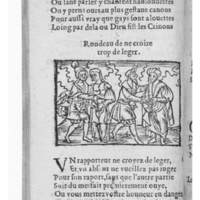 Ou sans parler y chantent nan ouurees
On y prent oyseau plus gessans canons
Pour aussi vray que gays sont alouettes
Loing par dela ou Dieu fist les Canons
Rondeau de ne croire
trop de leger.
VN rapporteur ne croyez de leger,
Et vo abs ne vueillez pas inger
Pour son raport, sans que l'autre partie
Soit du meffait premierement ouye,
Ou vous mettez vostre honneur en danger